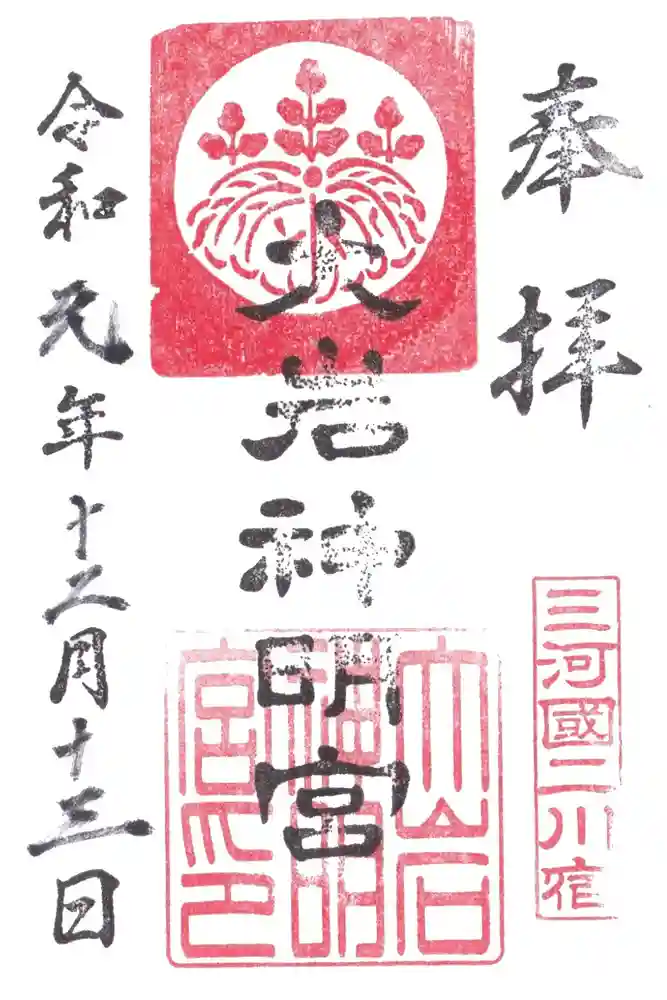 奉拝
三河國二川宿
大岩神明宮
大岩神明宮印
令和元年十二月十三日